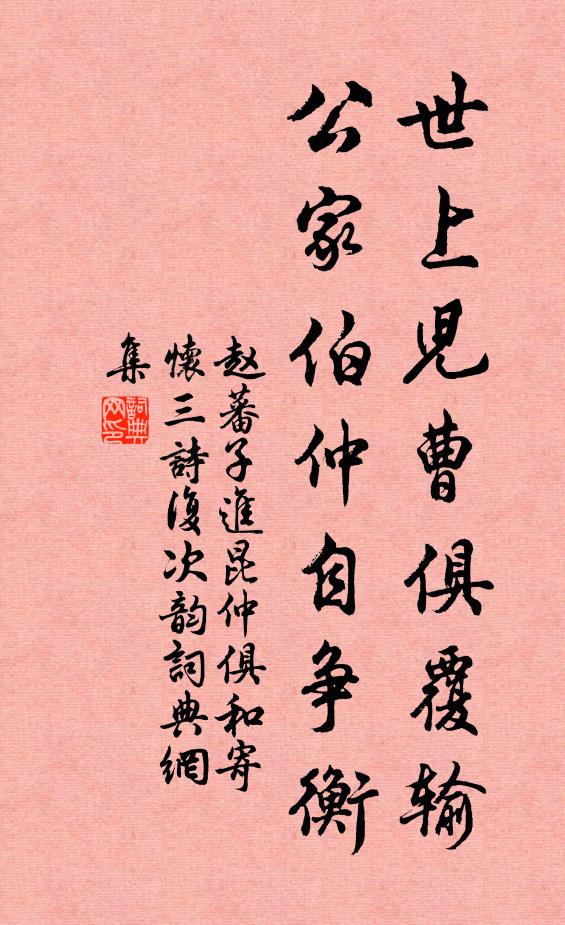 世上児曹俱覆输
公家伯仲自争衡
赵蕃子進昆仲俱和寄
懷三詩復次韵詞典網
集
詞典
网印